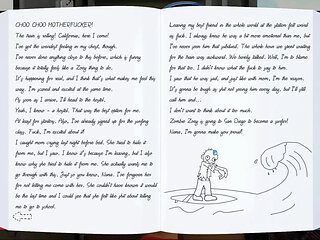 CHOO CHOO MOTHERFUCKER!
The train is rolling! California, here I come!
I've got the weirdest feeling in my chest, though.
I've never done anything close to this before, which is funny
because it totally feels like a Zoey thing to do.
It's happening for real, and I think that's what makes me feel this
way. I'm scared and excited at the same time.
As soon as I arrive, I'll head to the hostel.
Yeah, I know - a hostel. That was the best option for me.
At least for starters. Also, I've already signed up for the surfing
class. Fuck, I'm excited about it.
I caught mom crying last night before bed. She tried to hide it
from me, but I saw. I know it's because I'm leaving, but I also
know why she tried to hide it from me. She actually wants me to
go through with this. Just so you know, Nana, I've forgiven her
for not letting me come with her. She couldn't have known it would
be the last time and I could see that she felt like shit about telling
me to go to school.
Leaving my best friend in the whole world at the station felt weird
as fuck. I always knew he was a bit more emotional than me, but
I've never seen him that gutted. The whole time we spent waiting
for the train was awkward. We barely talked. Well, I'm to blame
for that too. I didn't know what the fuck to say to him.
I saw that he was sad, and just like with mom, I'm the reason.
It's gonna be tough as shit not seeing him every day, but I'll still
call him and...
I don't want to think about it too much.
Zombie Zoey is going to San Diego to become a surfer!
Nana, I'm gonna make you proud!